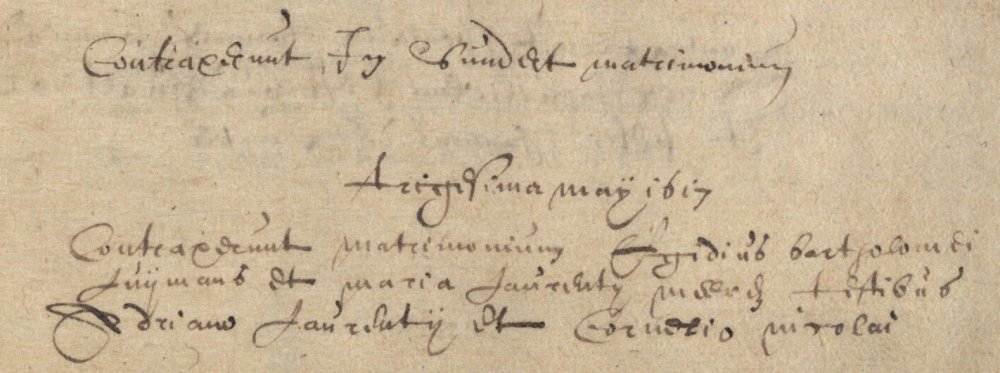 Contraxerunt In Sundert matrimonium
trigesima maÿ 1617
Contraxerunt matrimonium Egidius bartholomei
Luijmans et maria Laurentÿ testibus
Adriano Laurentÿ et Cornelio nicolai